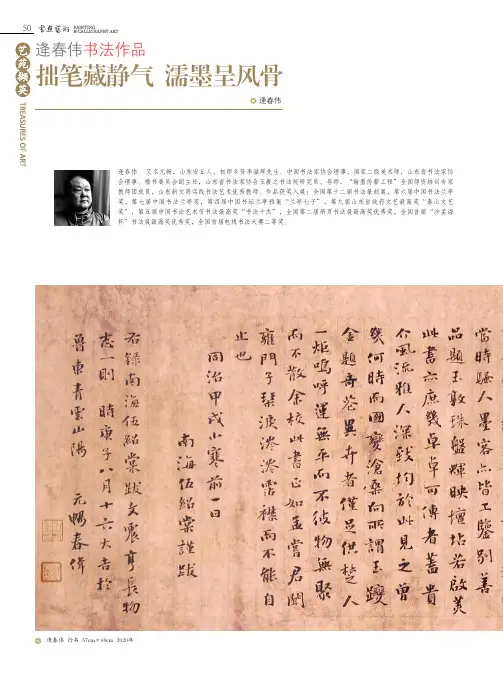 50 書畫藝術 PAINTING
& CALLIGRAPHY ART
艺苑撷英
TREASURES OF ART
逄春伟书法作品
拙笔藏静气 濡墨呈风骨
逄春伟
逄春伟 又名元畅，山东安丘人，初师乡贤李漱珲先生。中国书法家协会理事，国家二级美术师，山东省书法家协
会理事、楷书委员会副主任，山东省书法家协会王羲之书法院研究员、导师，“翰墨传薪工程”全国师资培训专家
教师团成员，山东新文明实践书法艺术优秀教师。作品获奖入展：全国第十二届书法篆刻展，第六届中国书法兰亭
奖，第七届中国书法兰亭奖，第四届中国书坛兰亭雅集“兰亭七子”，第九届山东省政府文艺最高奖“泰山文艺
奖”，第五届中国书法艺术节书法最高奖“书法十杰”，全国第二届册页书法展最高奖优秀奖，全国首届“沙孟海
杯”书法展最高奖优秀奖，全国首届电视书法大赛二等奖。
當時騷人墨客亦皆工鑒別善
品題玉敦珠盤輝映壇坫若啟美
此書亦庶幾卓卓可傳者蓋貴
介風流雅人深致均於此見之曾
幾何時而國變滄桑向所謂玉躞
金題奇花異卉者僅足供楚人
一炬嗚呼運無平而不陂物無聚
而不散余校此書正如孟嘗君聞
雍門子琴淚涔涔霑襟而不能自
止也
同治甲戌小寒前一日
南海伍紹棠謹跋
右錄南海伍紹棠跋文震亨長物
志一則 時庚子八月十六大吉於
魯東青雲山陽 元暢春偉
逄春伟 行书 37cm×68cm 2020年